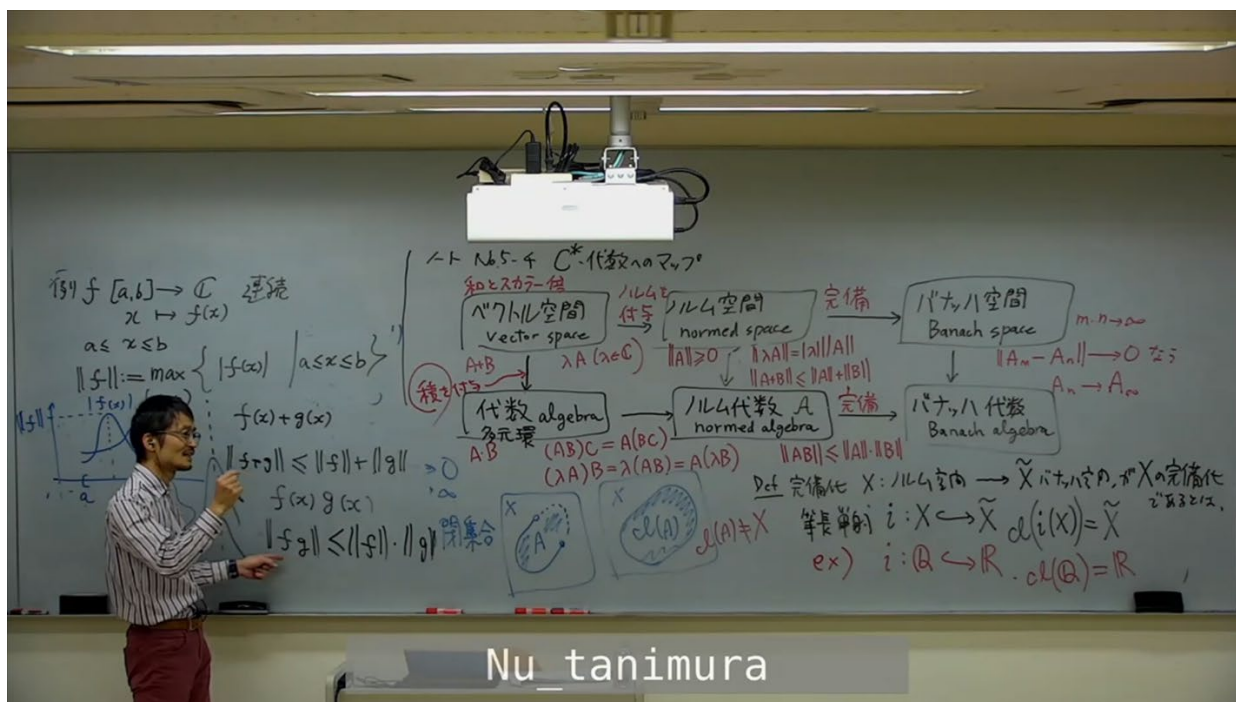 例 f [a,b] → ℂ 連続
x ↦ f(x)
a ≤ x ≤ b
‖f‖ := max { |f(x)| | a≤x≤b }
|f(x)|
‖f‖
a
f(x)+g(x)
‖f+g‖ ≤ ‖f‖+‖g‖
f(x)g(x)
‖fg‖ ≤ ‖f‖・‖g‖
ノート No.5-4 C*-代数へのマップ
和とスカラー倍
ベクトル空間
vector space
ノルムを
付与
ノルム空間
normed space
完備
バナッハ空間
Banach space
m.n→∞
A+B
λA (λ∈ℂ)
‖A‖≥0
‖λA‖=|λ|‖A‖
‖A+B‖≤‖A‖+‖B‖
‖Am−An‖→0 なら
An→A∞
積を付与
代数 algebra
多元環
ノルム代数 A
normed algebra
完備
バナッハ代数
Banach algebra
A・B
(AB)C=A(BC)
(λA)B=λ(AB)=A(λB)
‖AB‖≤‖A‖・‖B‖
閉集合
X
A
X
cl(A)
cl(A)≠X
Def 完備化 X:ノルム空間 → X̃ バナッハ空間,がXの完備化
であるとは,
等長単射 i:X↪X̃ cl(i(X))=X̃
ex) i:ℚ↪ℝ. cl(ℚ)=ℝ
Nu_tanimura